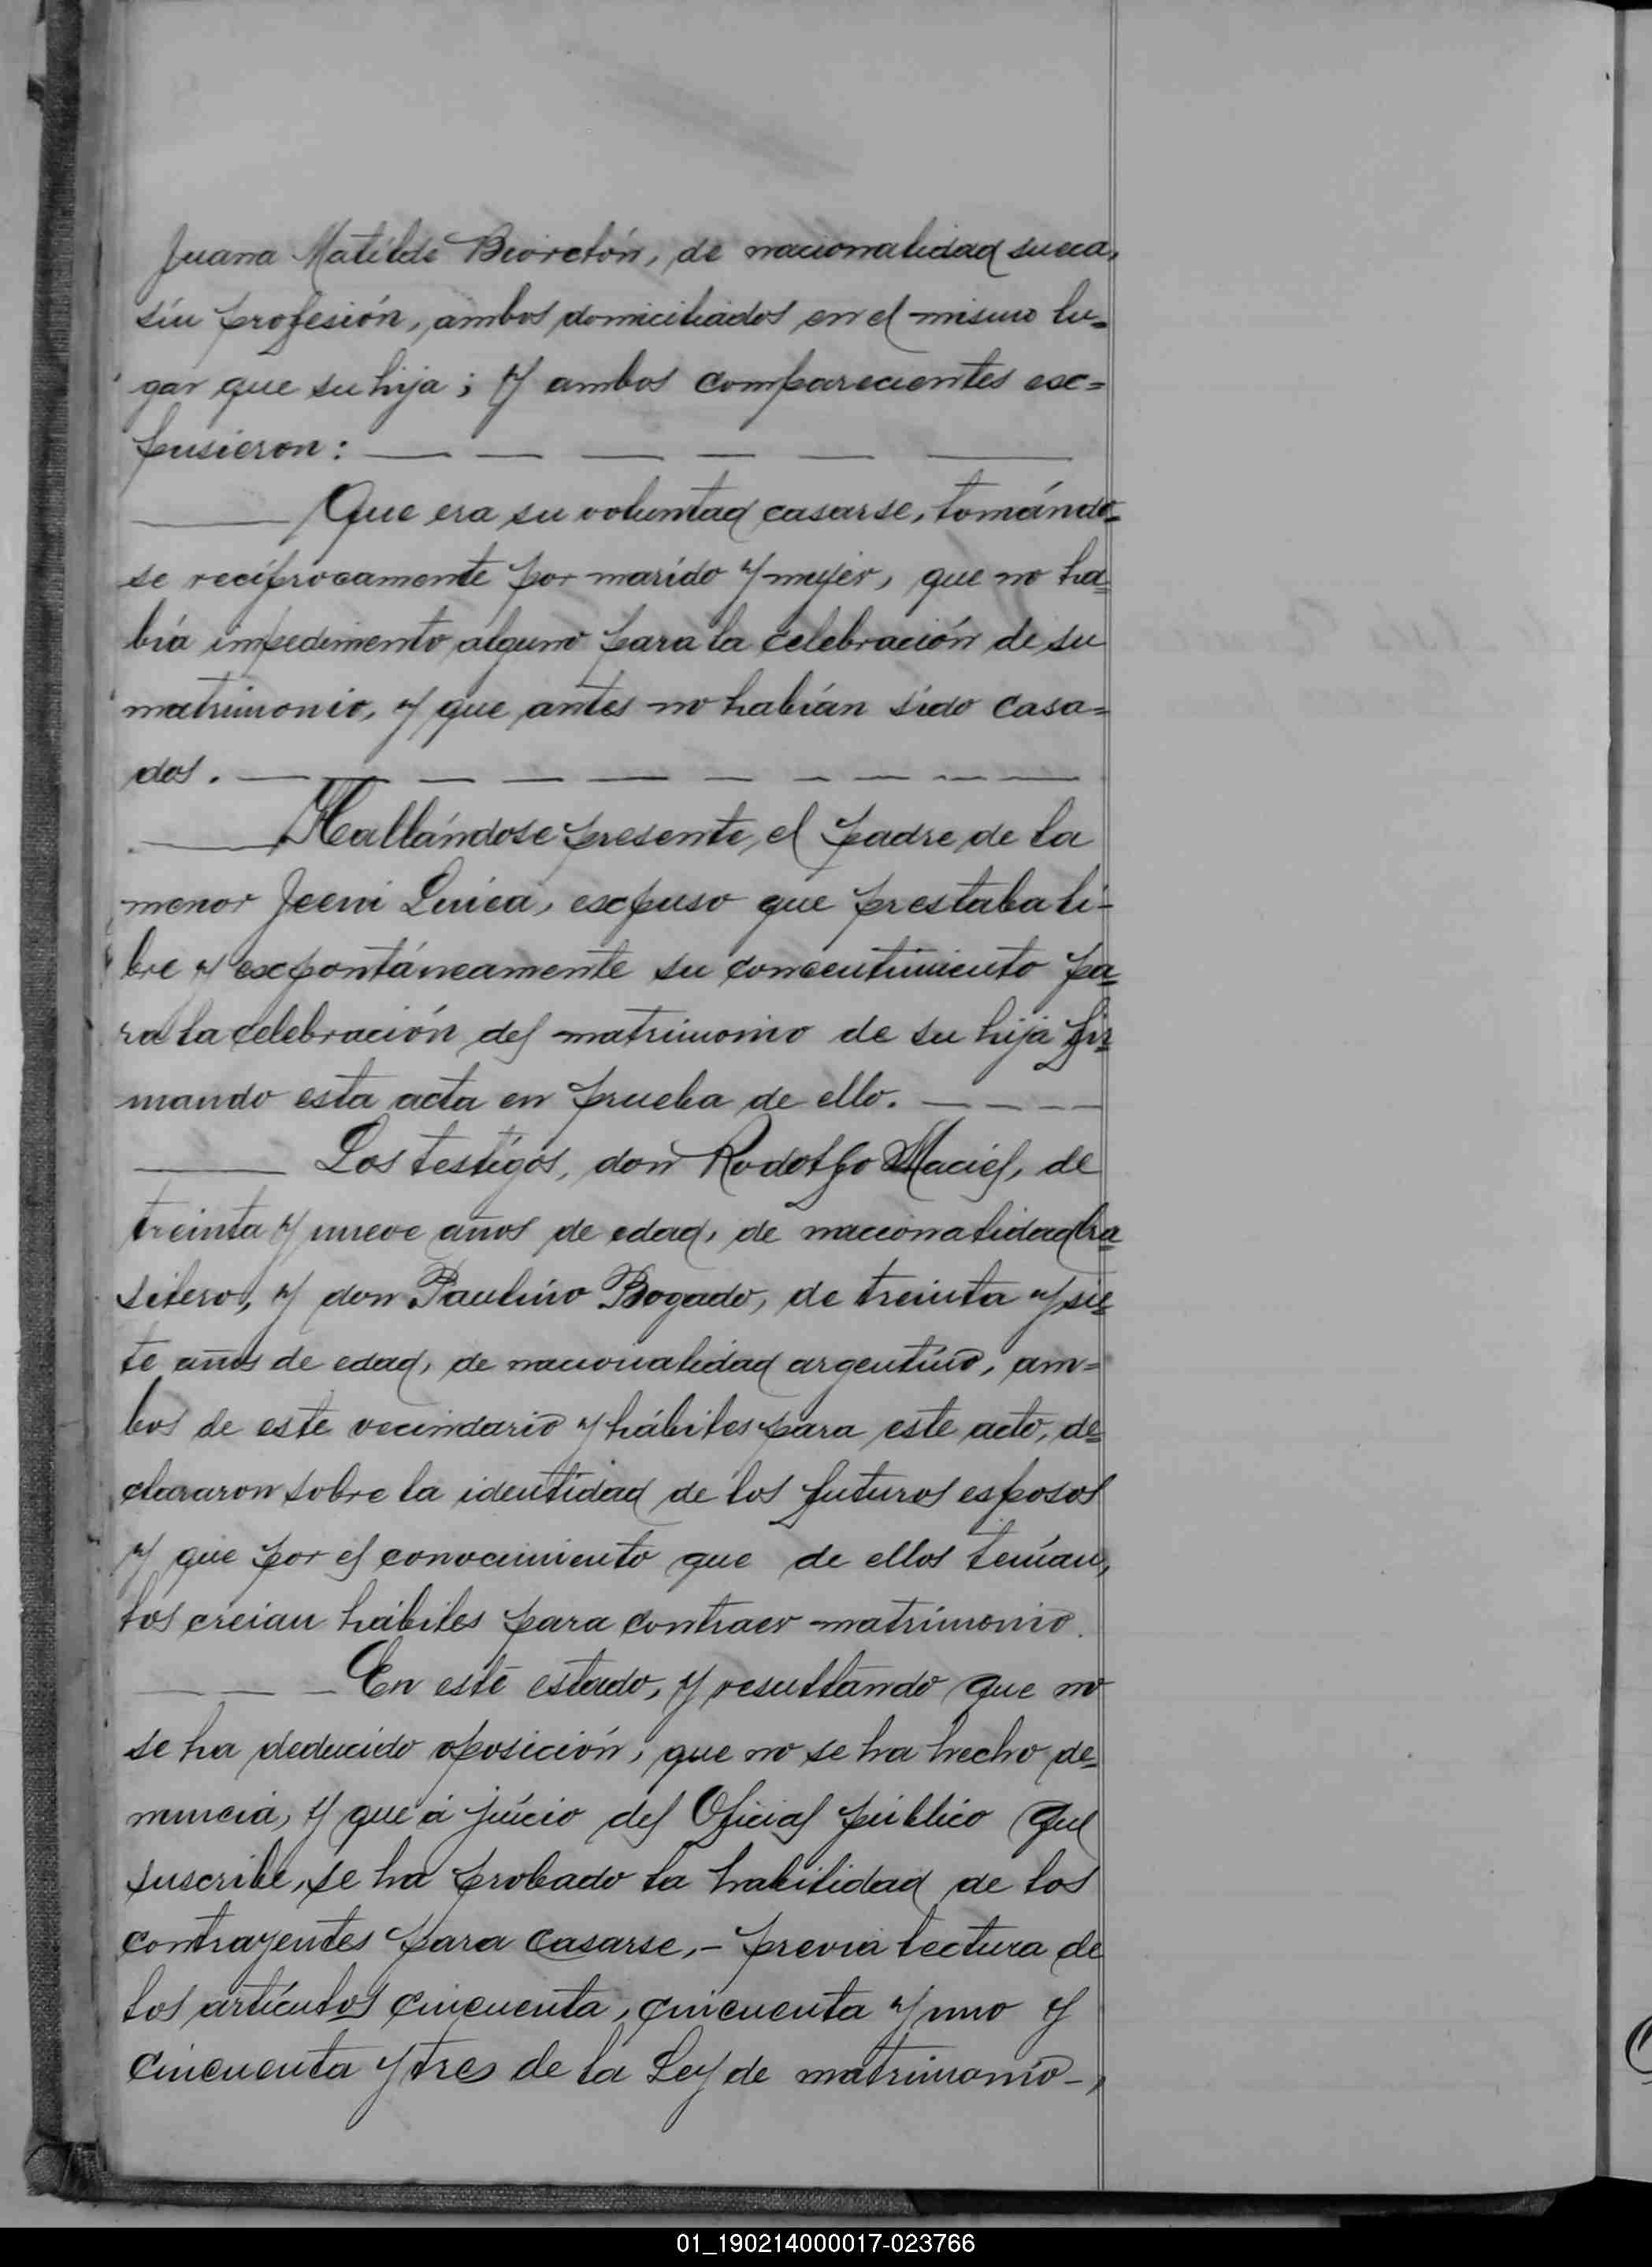 Juana Matilde Bioretón, de nacionalidad sueca,
sin profesión, ambos domiciliados en el mismo lu-
gar que su hija; y ambos comparecientes ex=
pusieron:
Que era su voluntad casarse, tomándo-
se recíprocamente por marido y mujer, que no ha-
bía impedimento alguno para la celebración de su
matrimonio, y que antes no habían sido casa=
dos.
Hallándose presente, el padre de la
menor Jeeni Luisa, expuso que prestaba li-
bre y expontáneamente su concentimiento pa-
ra la celebración del matrimonio de su hija fir-
mando esta acta en prueba de ello.
Los testigos, don Rodolfo Maciel, de
treinta y nueve años de edad, de nacionalidad bra-
silero, y don Paulino Bogado, de treinta y sie-
te años de edad, de nacionalidad argentino, am=
bos de este vecindario y hábiles para este acto, de-
clararon sobre la identidad de los futuros esposos
y que por el conocimiento que de ellos tenían,
los creian hábiles para contraer matrimonio.
En este estado, y resultando que no
se ha deducido oposición, que no se ha hecho de-
nuncia, y que á juicio del Oficial público que
suscribe, se ha probado la habilidad de los
contrayentes para casarse,- previa lectura de
los artículos cincuenta, cincuenta y uno y
cincuenta y tres de la Ley de matrimonio-,
01_190214000017-023766